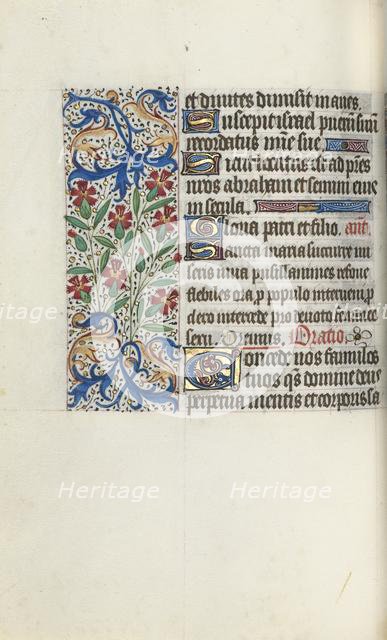 et divites dimisit inanes.
Suscepit israel puerum suum
recordatus mie sue
Sicut locutus est ad pres
nros abraham et semini eius
in secula.
Gloria patri et filio. ant.
Sancta maria succurre mi
seris iuva pusillanimes refove
flebiles ora p populo interveni p
clero intercede pro devoto femineo
sexu. Oremus. Oratio
Concede nos famulos
tuos qs domine deus
perpetua mentis et corporis sa
Heritage
Heritage
Heritage
Heritage
Heritage
Heritage